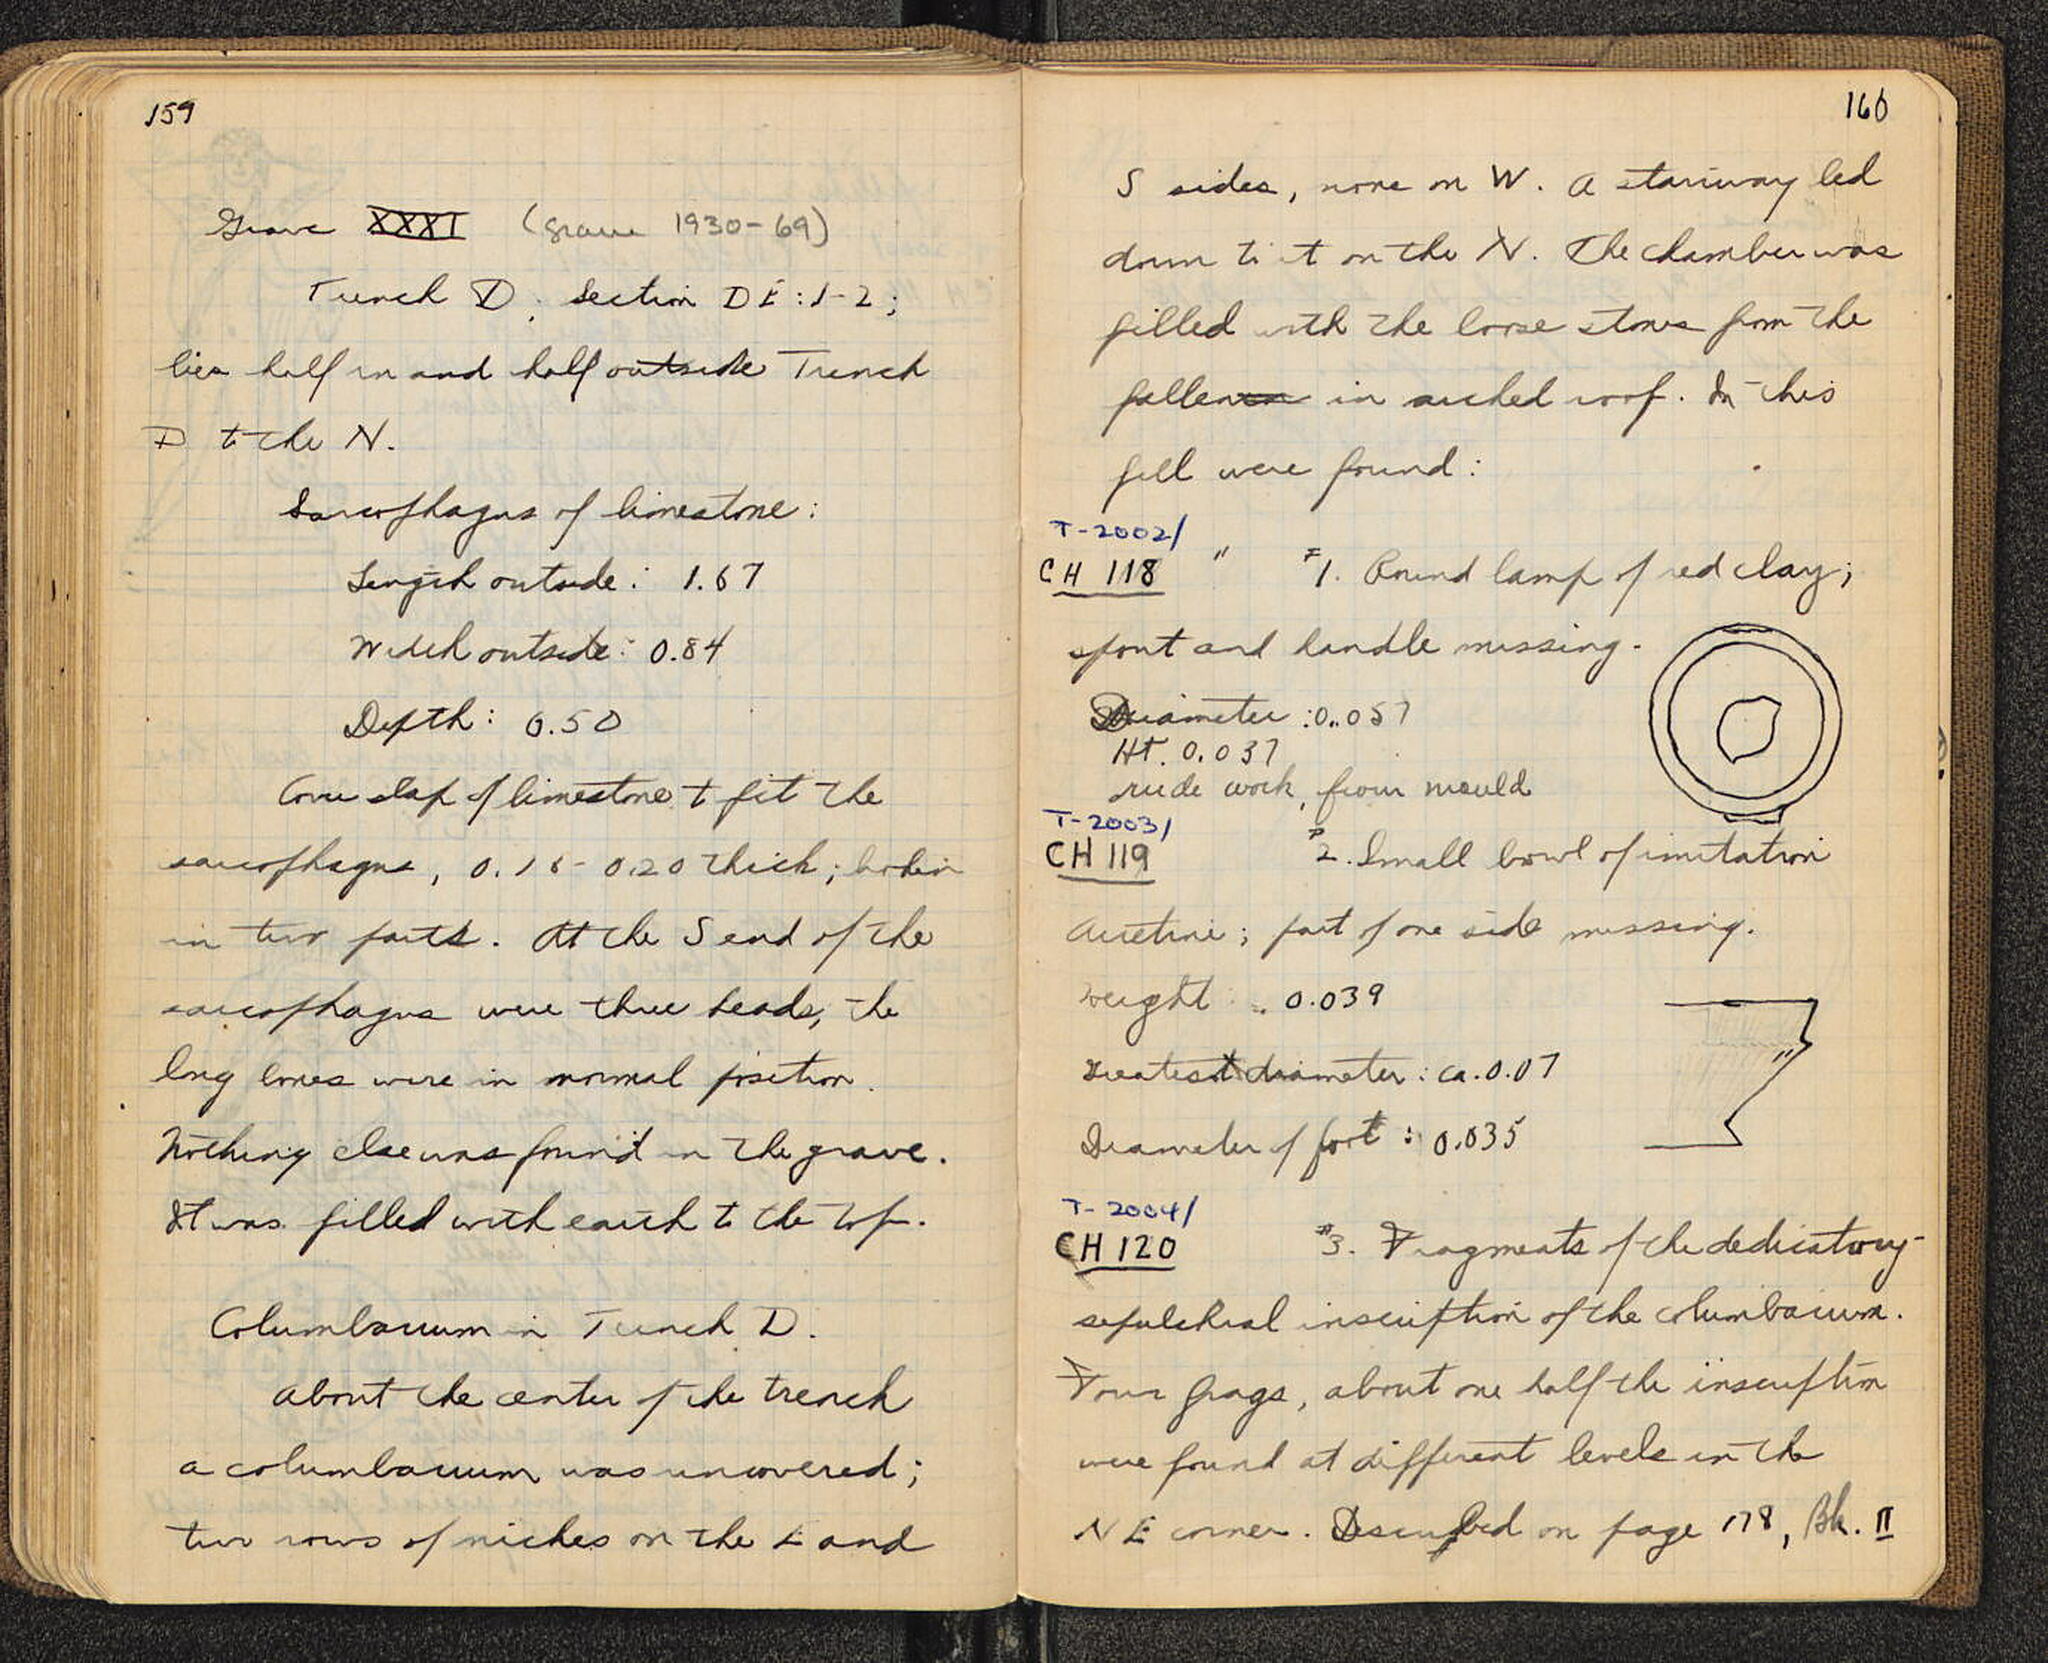 159
Grave XXXI (grave 1930-69)
Trench D; Section DE:1-2;
lies half in and half outside Trench
D to the N.
Sarcophagus of limestone:
Length outside: 1.67
Width outside: 0.84
Depth: 0.50
Cover slap of limestone t fit the
sarcophagus, 0.18-0.20 thick; broken
in two parts. At the S end of the
sarcophagus were three heads, the
long bones were in normal position.
Nothing else was found in the grave.
It was filled with earth to the top.
Columbarium in Trench D.
About the center of the trench
a columbarium was uncovered;
two rows of niches on the E and
160
S sides, none on W. A stairway led
down to it on the N. The chamber was
filled with the loose stones from the
fallen in arched roof. In this
fill were found:
T-2002/
CH 118 " #1. Round lamp of red clay;
spout and handle missing.
Diameter: 0.057
Ht. 0.037
rude work, from mould
T-2003/
CH 119 #2. Small bowl of imitation
Arretine; part of one side missing.
Height: 0.039
Greatest diameter: ca. 0.07
Diameter of foot: 0.035
T-2004/
CH 120 #3. Fragments of the dedicatory-
sepulchral inscription of the columbarium.
Four frags, about one half the inscription
were found at different levels in the
NE corner. Described on page 178, Bk. II